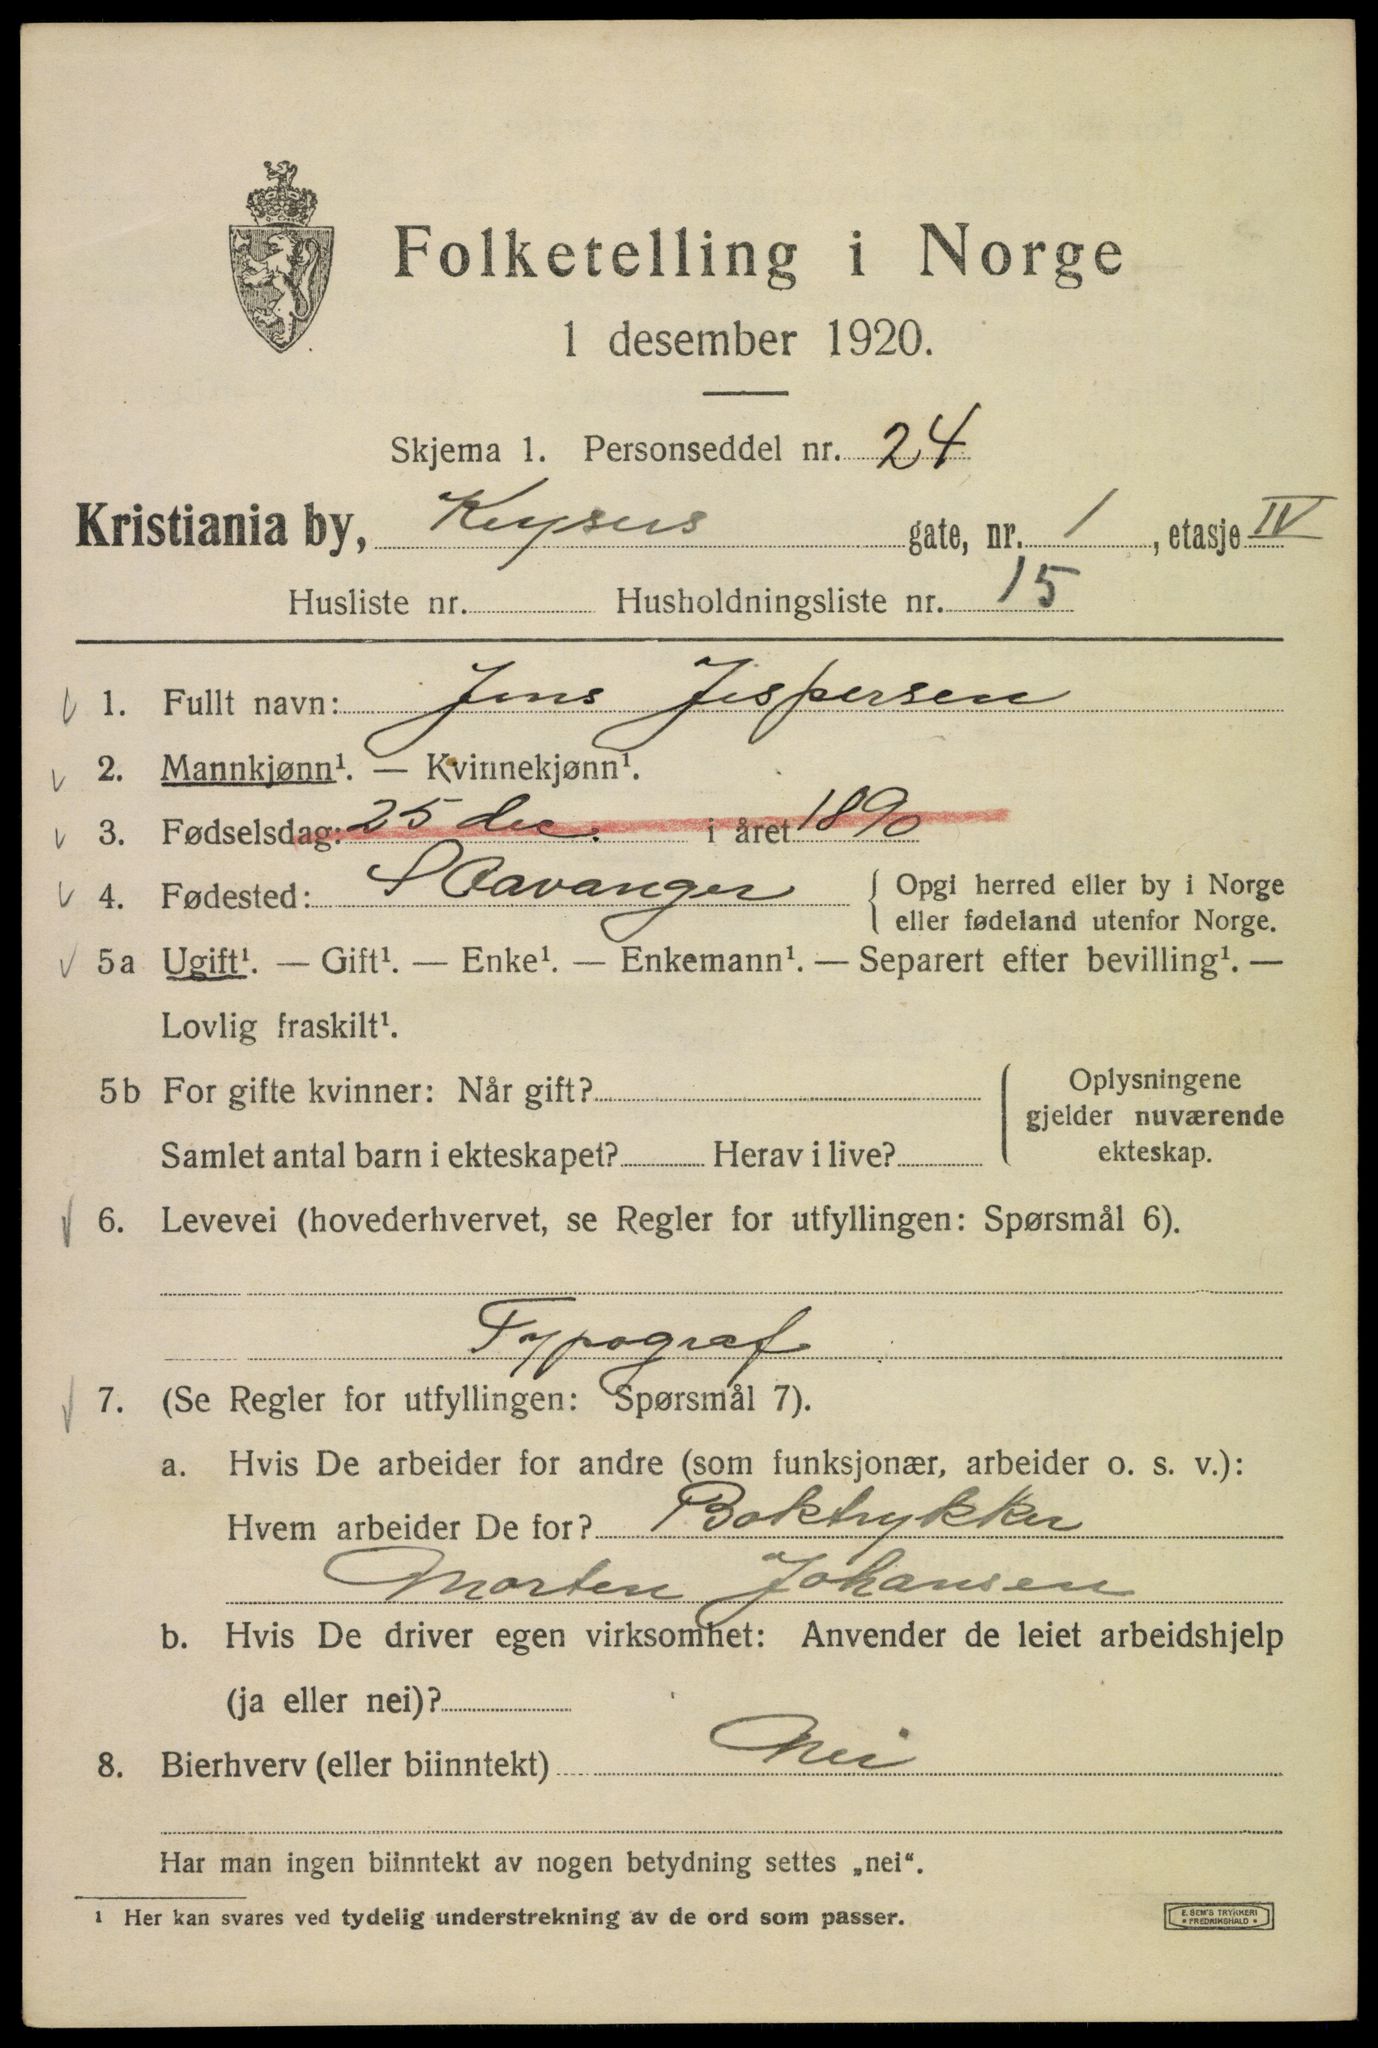 Folketelling i Norge
1 desember 1920.
Skjema 1. Personseddel nr. 24
Kristiania by, Keysers gate, nr. 1, etasje IV
Husliste nr. Husholdningsliste nr. 15
1. Fullt navn: Jens Jespersen
2. Mannkjønn¹. — Kvinnekjønn¹.
3. Fødselsdag: 25 dec. i året 1890
4. Fødested: Stavanger { Opgi herred eller by i Norge
eller fødeland utenfor Norge.
5a Ugift¹. — Gift¹. — Enke¹. — Enkemann¹. — Separert efter bevilling¹. —
Lovlig fraskilt¹.
5b For gifte kvinner: Når gift? { Oplysningene
gjelder nuværende
Samlet antal barn i ekteskapet? Herav i live? ekteskap.
6. Levevei (hovederhvervet, se Regler for utfyllingen: Spørsmål 6).
Typograf
7. (Se Regler for utfyllingen: Spørsmål 7).
a. Hvis De arbeider for andre (som funksjonær, arbeider o. s. v.):
Hvem arbeider De for? Boktrykker
Morten Johansen
b. Hvis De driver egen virksomhet: Anvender de leiet arbeidshjelp
(ja eller nei)?
8. Bierhverv (eller biinntekt) Nei
Har man ingen biinntekt av nogen betydning settes „nei“.
¹ Her kan svares ved tydelig understrekning av de ord som passer.
E. SEM'S TRYKKERI
• FREDRIKSHALD •